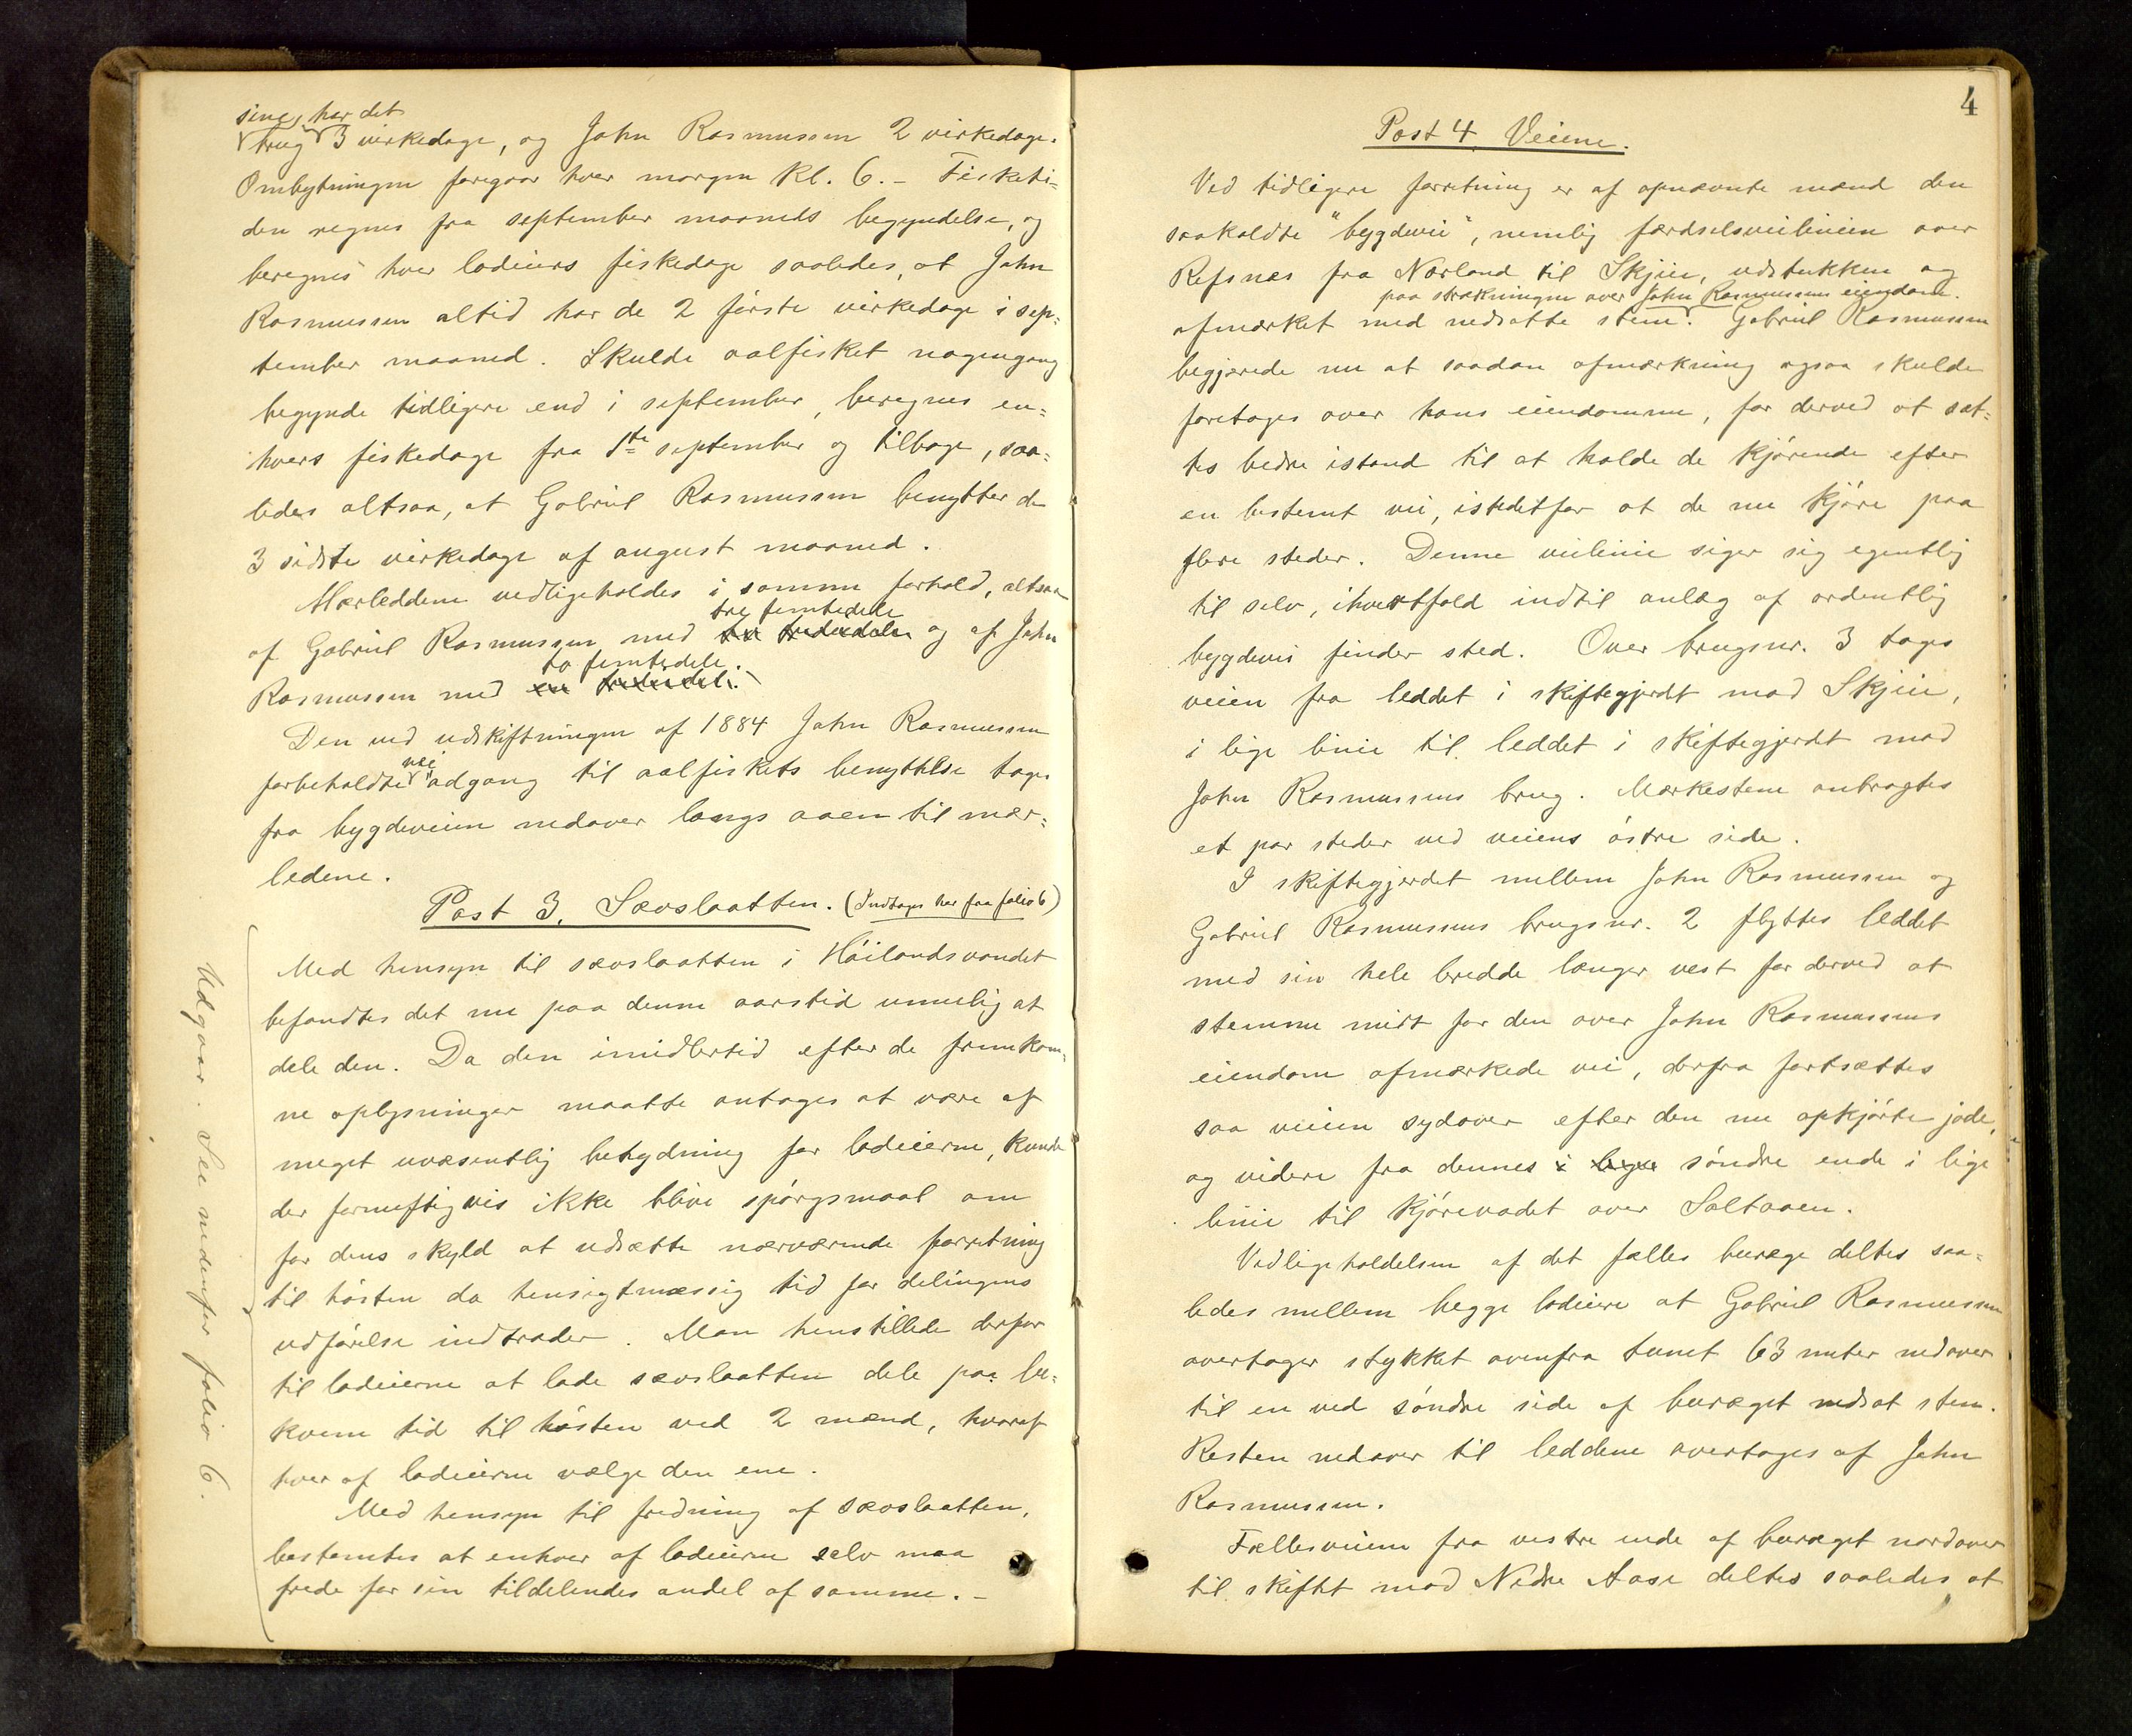 sine, har det
brug 3 virkedage, og John Rasmussen 2 virkedage.
Ombytningen foregaar hver morgen Kl. 6. – Fisketi=
den regnes fra september maaneds begyndelse, og
beregnes hver lodeiers fiskedage saaledes, at John
Rasmussen altid har de 2 første virkedage i sep=
tember maaned. Skulde aalfisket nogengang
begynde tidligere end i september, beregnes en=
hvers fiskedage fra 1ste september og tilbage, saa=
ledes altsaa, at Gabriel Rasmussen benytter de
3 sidste virkedage af august maaned.
Mærleddene vedligeholdes i samme forhold, altsaa
tre femtedele
af Gabriel Rasmussen med to trediedele og af John
to femtedele.
Rasmussen med en trediedel.
Den ved udskiftningen af 1884 John Rasmussen
vei
forbeholdte adgang til aalfiskets benyttelse tages
fra bygdeveien nedover langs aaen til mær=
ledene.
Post 3. Sævslaatten. (Indtages her fra folio 6)
Med hensyn til sævslaatten i Høilandsvandet
befandtes det nu paa denne aarstid umulig at
dele den. Da den imidlertid efter de fremkom=
ne oplysninger maatte antages at være af
meget uvæsentlig betydning for lodeierne, kunde
der fornuftigvis ikke blive spørgsmaal om
for dens skyld at udsætte nærværende forretning
til høsten da hensigtmæssig tid for delingens
udførelse indtræder. Man henstillede derfor
til lodeierne at lade sævslaatten dele paa be=
kvem tid til høsten ved 2 mænd, hvoraf
hver af lodeierne vælge den ene.
Med hensyn til fredning af sævslaatten,
bestemtes at enhver af lodeierne selv maa
frede for sin tildelendes andel af samme. –
Udgaar. See nedenfor folio 6.
4
Post 4. Veiene.
Ved tidligere forretning er af opnævnte mænd den
saakaldte "bygdevei", nemlig færdselsveilinien over
Refsnes fra Nærland til Skjeie, udstukken og
paa strækningen over John Rasmussens eiendom.
afmærket med nedsatte stene. Gabriel Rasmussen
begjærede nu at saadan afmærkning ogsaa skulde
foretages over hans eiendomme, for derved at sæt=
tes bedre istand til at holde de kjørende efter
en bestemt vei, istedetfor at de nu kjøre paa
flere steder. Denne veilinie siger sig egentlig
til selv, ihvertfald indtil anlæg af ordentlig
bygdevei finder sted. Over brugsnr. 3 tages
veien fra leddet i skiftegjerdt mod Skjeie,
i lige linie til leddet i skiftegjerdt mod
John Rasmussens brug. Mærkestene anbragtes
et par steder ved veiens østre side.
I skiftegjerdet mellem John Rasmussen og
Gabriel Rasmussens brugsnr. 2 flyttes leddet
med sin hele bredde længer vest for derved at
stemme midt for den over John Rasmussens
eiendom afmærkede vei, derfra fortsættes
saa veien sydover efter den nu opkjørte jode,
og videre fra dennes i lige søndre ende i lige
linie til kjørevadet over Saltaaen.
Vedligeholdelsen af det fælles buræge deltes saa=
ledes mellem begge lodeiere at Gabriel Rasmussen
overtager stykket ovenfra tunet 63 meter nedover
til en ved søndre side af buræget nedsat sten.
Resten nedover til leddene overtages af John
Rasmussen.
Fællesveien fra vestre ende af buræget nordover
til skiftet mod Nedre Aase deltes saaledes, at